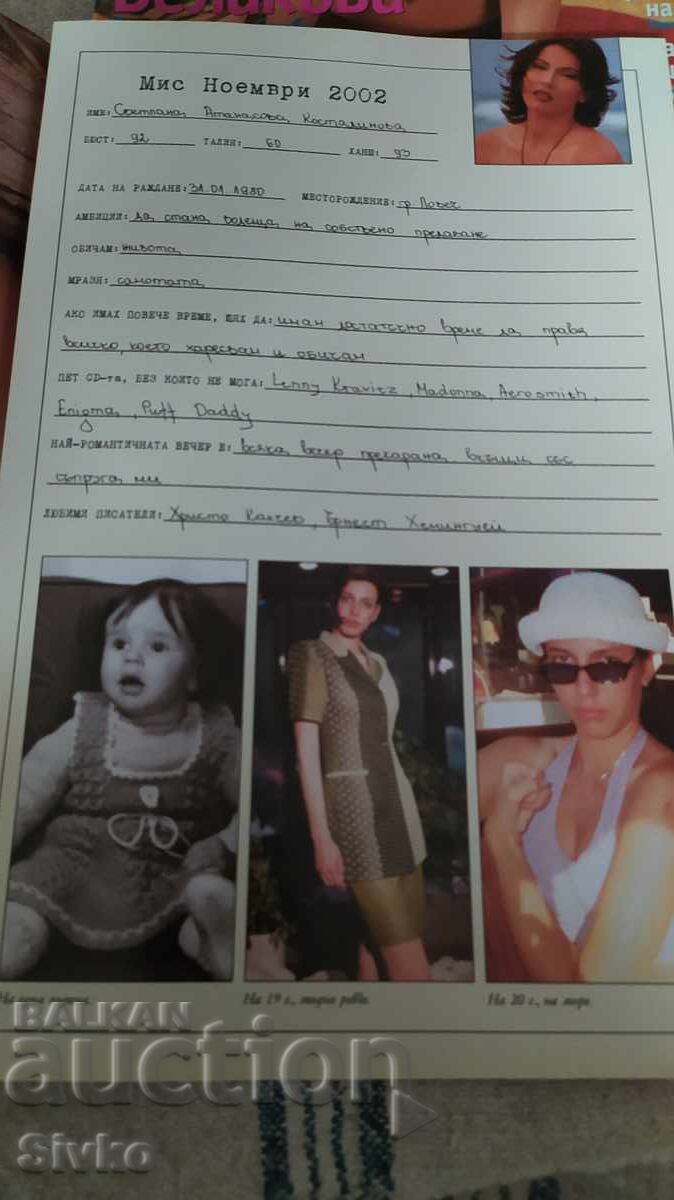 Великова
на
Мис Ноември 2002
ИМЕ: Светлана Атанасова Косталинова
БЮСТ: 92 ТАЛИЯ: 60 ХАНШ: 93
ДАТА НА РАЖДАНЕ: 31.01.1980 МЕСТОРОЖДЕНИЕ: гр. Ловеч
АМБИЦИИ: да стана водеща на собствено предаване
ОБИЧАМ: живота
МРАЗЯ: самотата
АКО ИМАХ ПОВЕЧЕ ВРЕМЕ, ЩЯХ ДА: имам достатъчно време да правя
всичко, което харесвам и обичам
ПЕТ CD-та, БЕЗ КОИТО НЕ МОГА: Lenny Kravitz, Madonna, Aerosmith,
Enigma, Puff Daddy
НАЙ-РОМАНТИЧНАТА ВЕЧЕР Е: всяка вечер прекарана вкъщи със
съпруга ми
ЛЮБИМИ ПИСАТЕЛИ: Христо Калчев, Ернест Хемингуей
На 19 г., модно ревю.
На 20 г., на море.
BALKAN
auction
Sivko